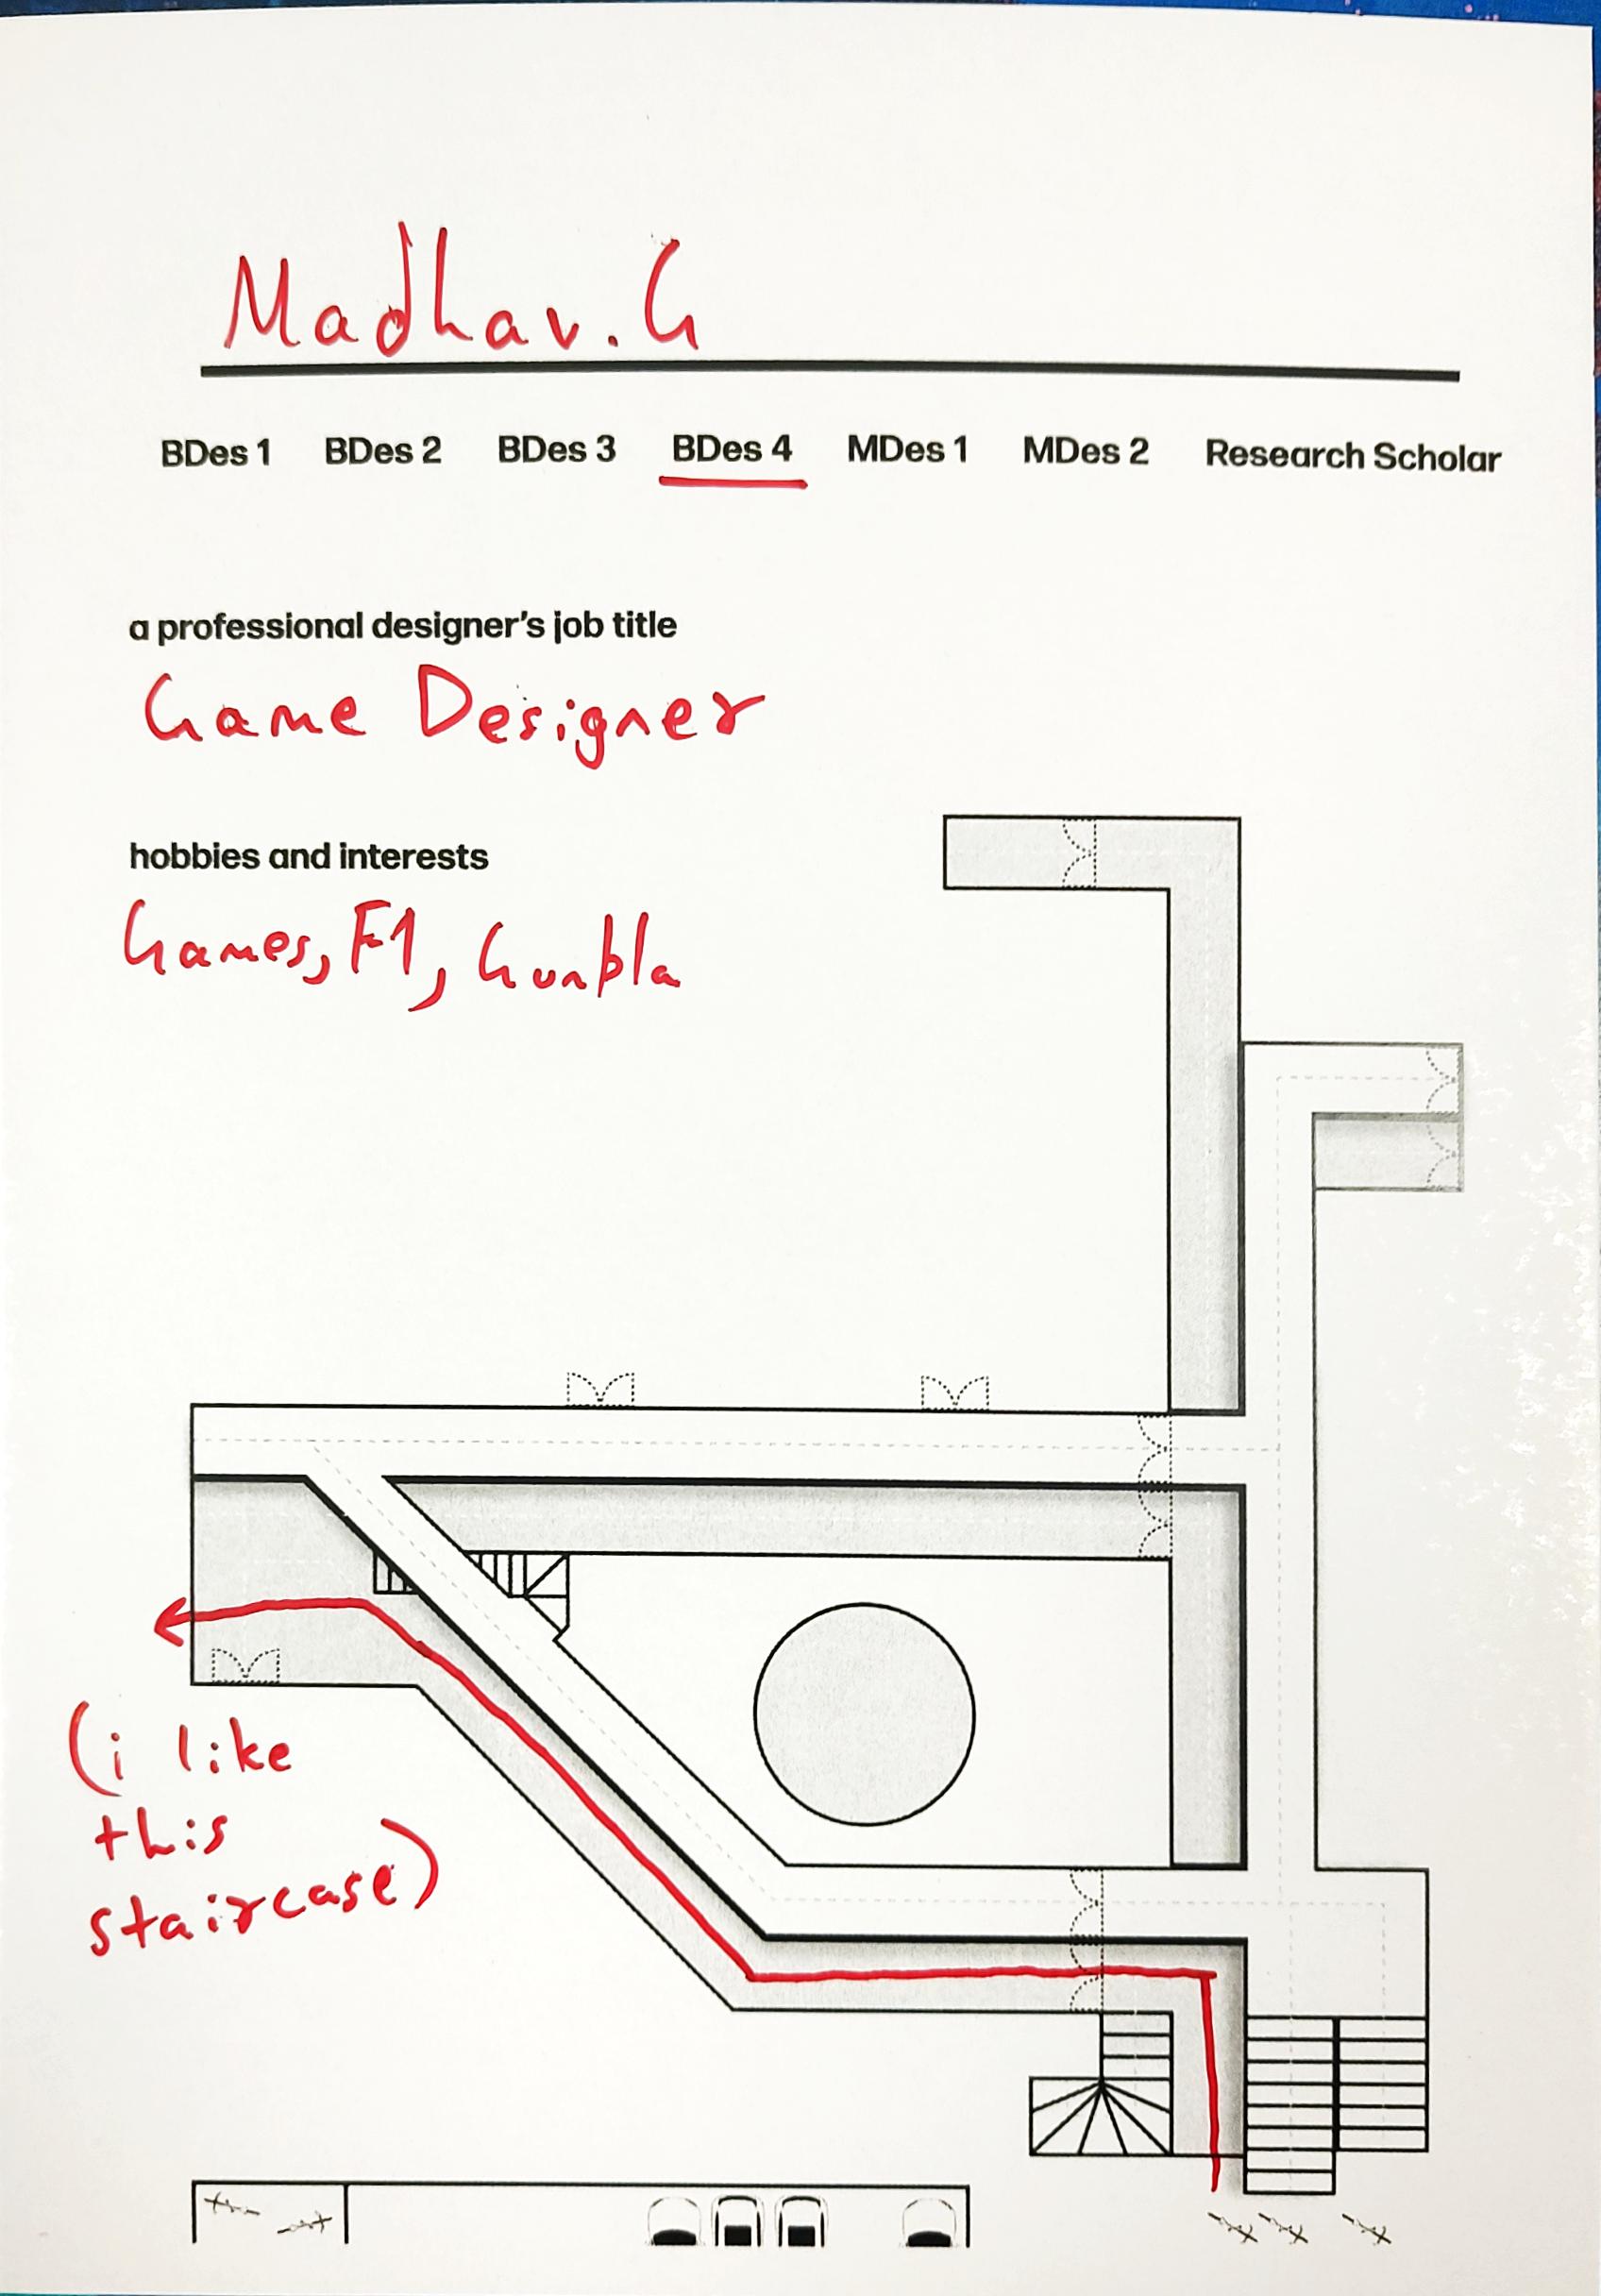 Madhav.G
BDes 1 BDes 2 BDes 3 BDes 4 MDes 1 MDes 2 Research Scholar
a professional designer's job title
Game Designer
hobbies and interests
Games, F1, Gunpla
(i like
this
staircase)